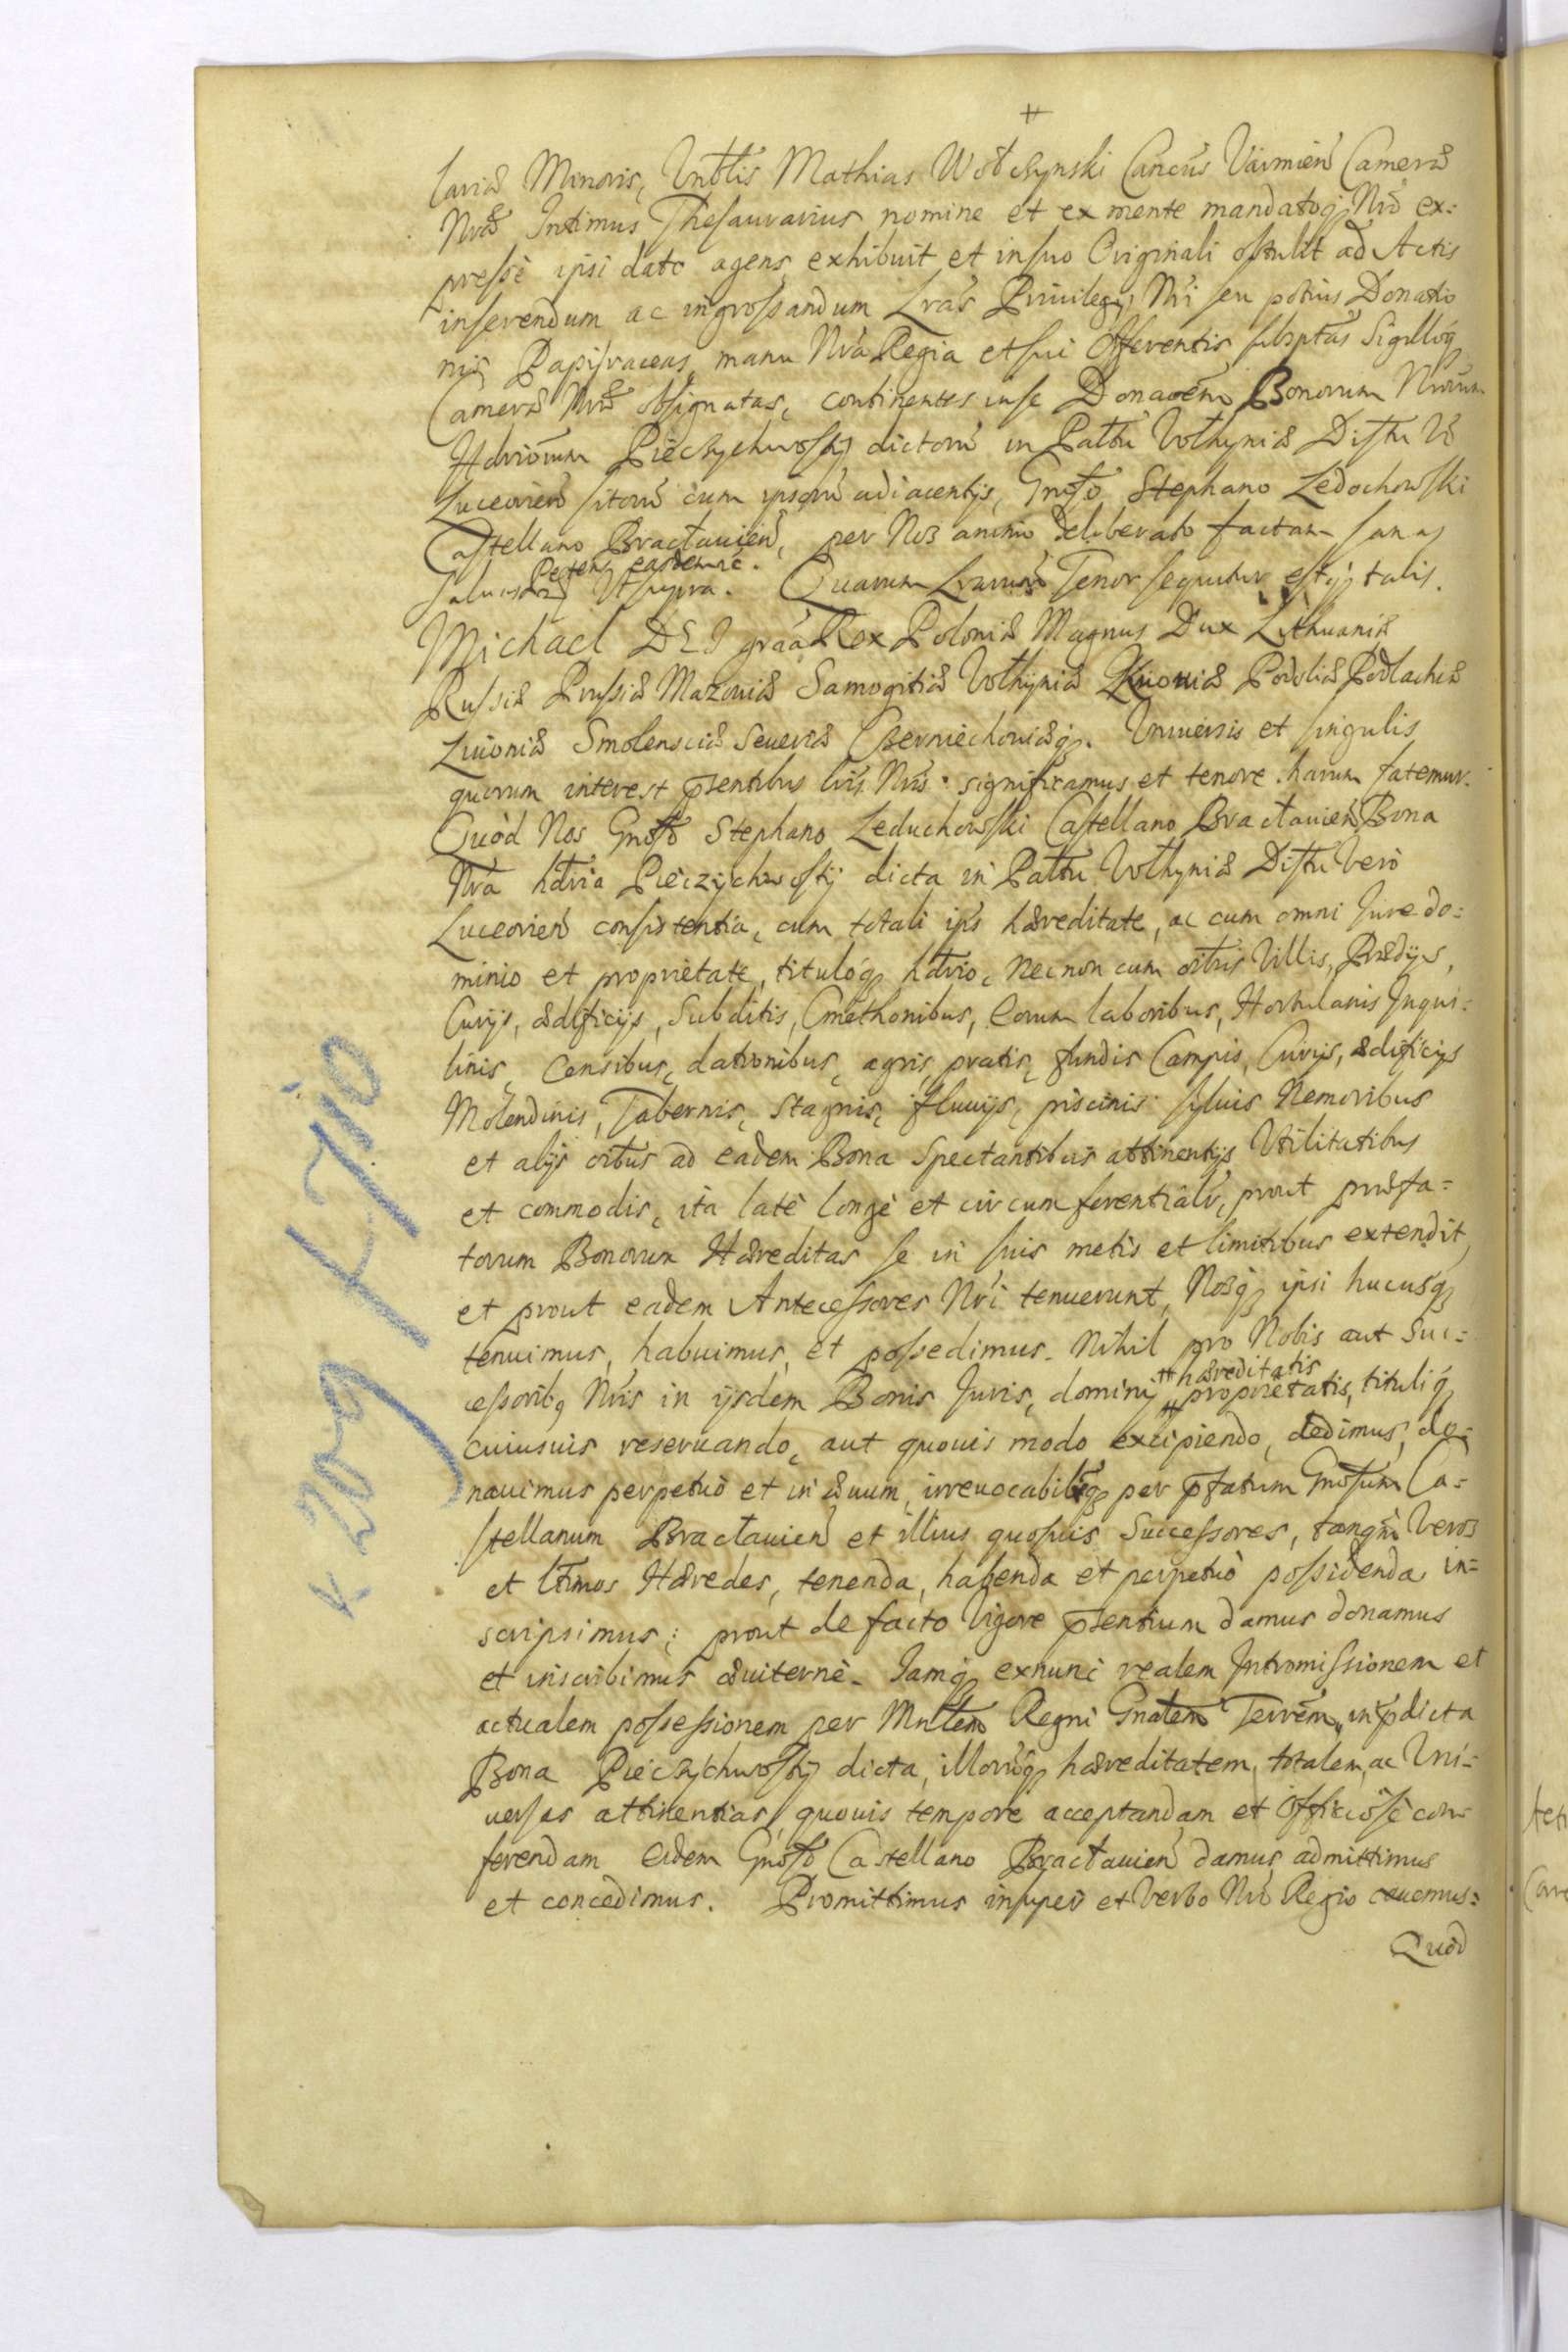 #
lariæ Minoris, Vnblis Mathias Wolczynski Cancus Varmien Cameræ
Nræ Intimus Thesaurarius nomine et ex mente mandatoq Nro ex:
presse ipsi dato agens, exhibuit et in suo Originali obtulit ad Actis
inserendum ac ingrossandum Lras Priuilegij Nri seu potius Donatio
nis Papiraceas, manu Nra Regia et sui Offerentis subsptas Sigilloq
Cameræ Nræ obsignatas, continentes in se Donaoem Bonorum Nrorum
Hdriorum Pieczychwosty dictoru in Pallu Volhyniæ Distu Vo
Luceorien sitoru cum ipsoru adiacentijs, Gnoso Stephano Ledochowski
Castellano Bractauien, per Nos animo deliberato factam sanas
Petens easdem &c.
saluas Vt supra. Quarum Lrarum Tenor sequitur estq talis.
Michael DEI graa Rex Poloniæ Magnus Dux Lithuaniæ
Russiæ Prussiæ Mazouiæ Samogitiæ Volhyniæ Kiiouiæ Podoliæ Podlachiæ
Liuoniæ Smolensciæ Seueriæ Czerniechouiæq. Vniuersis et singulis
quorum interest psentibus lris Nris significamus et tenore harum fatemur.
Quòd Nos Gnoso Stephano Leduchowski Castellano Bractauien Bona
Nra hdria Pieczychwosty dicta in Pallu Volhyniæ Distu Vero
Luceorien consistentia, cum totali ips hæreditate, ac cum omni Jure do:
minio et proprietate, tituloq hdrio, necnon cum oibus Villis, Prædijs,
Curijs, ædificijs, Subditis, Cmethonibus, Eorum laboribus, Hortulanis Inqui:
linis, Censibus, dationibus, agris, pratis, fundis Campis, Curijs, ædificijs
Molendinis, Tabernis, Stagnis, fluuijs, piscinis syluis Nemoribus
et alijs oibus ad eadem Bona Spectantibus attinentijs Vtilitatibus
et commodis, ita latè longè et circumferentialr, prout præfa=
torum Bonorum Hæreditas se in suis metis et limitibus extendit,
et prout eadem Antecessores Nri tenuerunt, Nosq ipsi hucusq
tenuimus, habuimus, et possedimus. Nihil pro Nobis aut Suc=
# hæreditatis
cessoribq Nris in ijsdem Bonis Juris, dominij # proprietatis, tituliq
cuiusuis reseruando, aut quouis modo excipiendo, dedimus, do:
nauimus perpetuò et in æuum, irreuocabilrq per pfatum Gnosum Ca:
stellanum Bractauien et illius quosuis Successores, tanqm Veros
et ltimos Hæredes, tenenda, habenda et perpetuò possidenda in=
scripsimus; prout de facto Vigore psentium damus donamus
et inscribimus æuiternè. Jamq exnunc realem Intromissionem et
actualem possessionem per Mnlem Regni Gnalem Terrem, in pdicta
Bona Pieczychwosty dicta, illoruq hæreditatem, totalem, ac Vni=
uersas attinentias, quouis tempore acceptandam et Officiosè con
ferendam eidem Gnoso Castellano Bractauien damus, admittimus
et concedimus. Promittimus insuper et Verbo Nro Regio cauemus:
Quòd